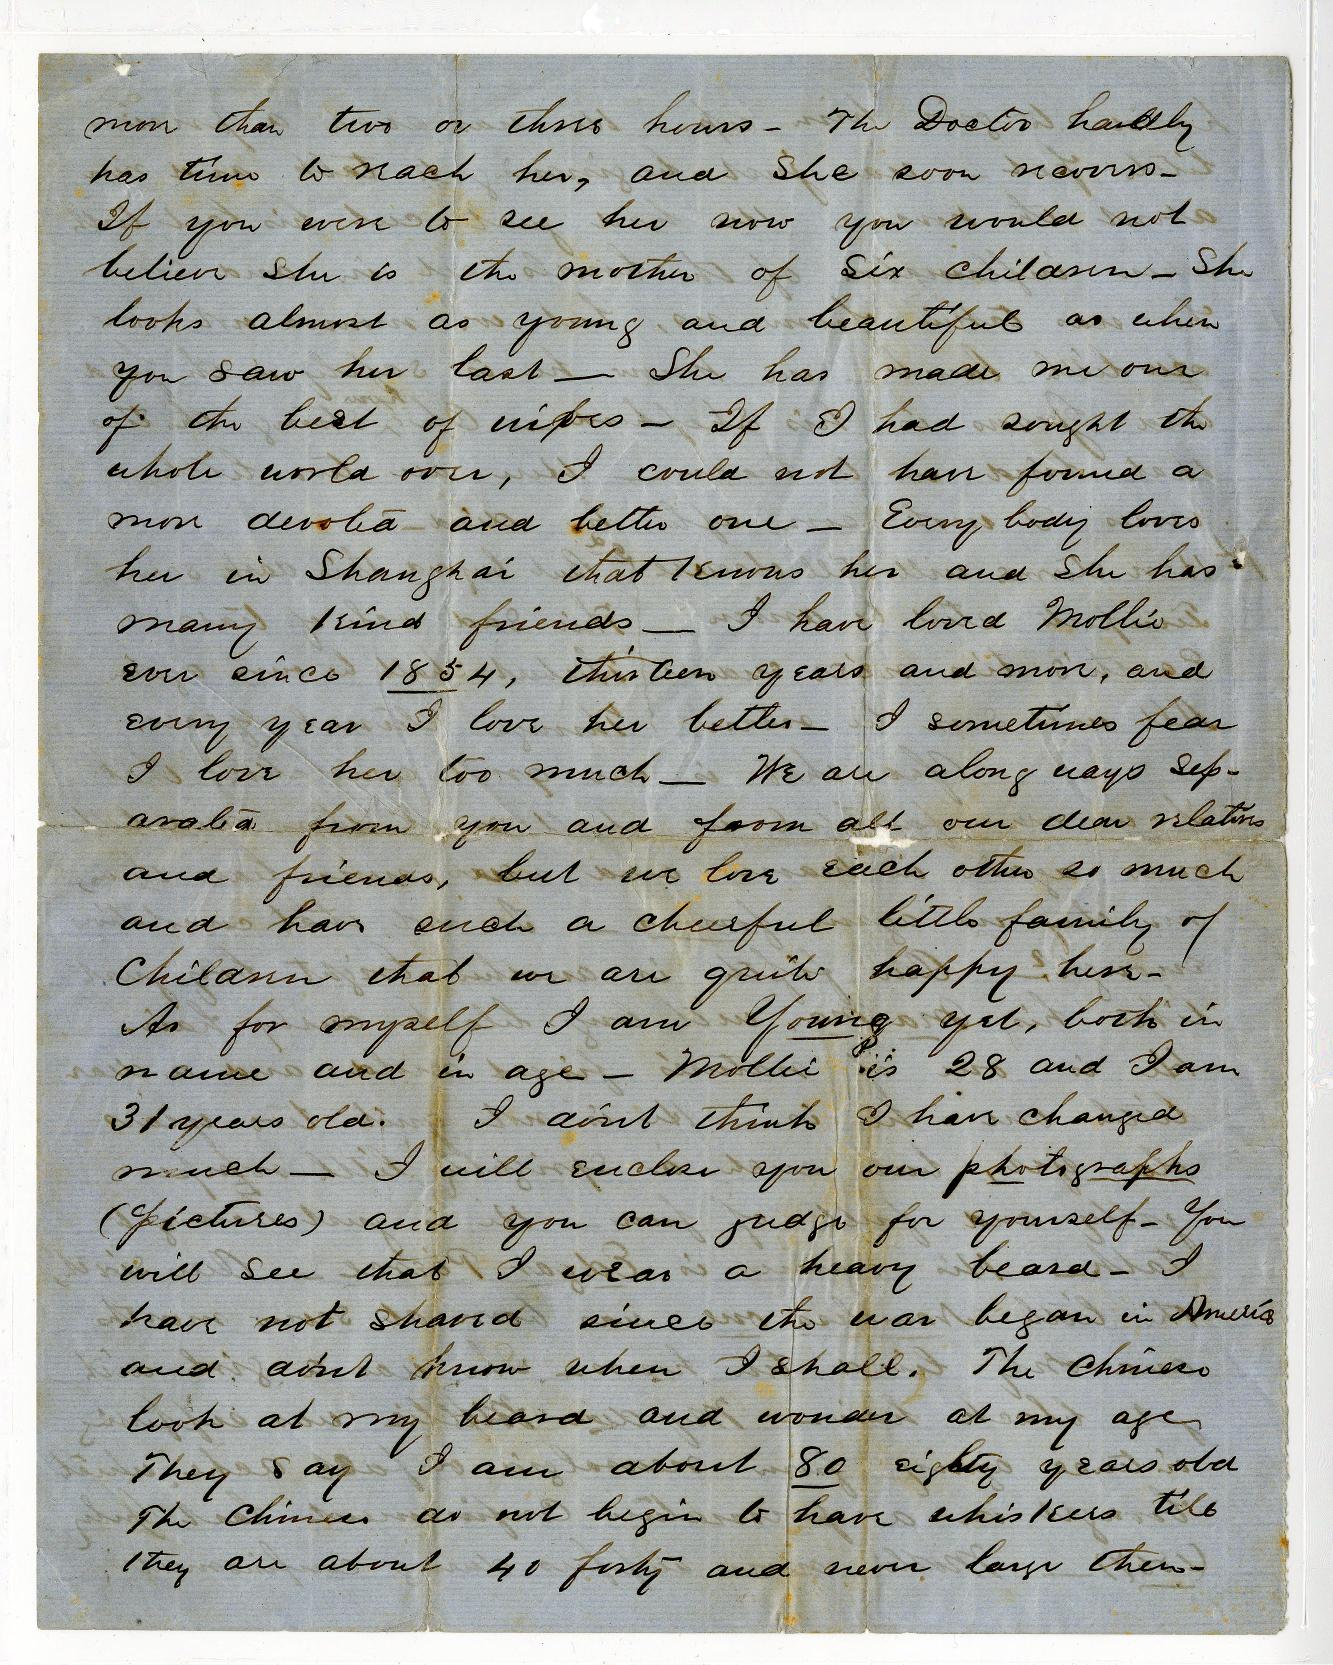 more than two or three hours - The Doctor hardly
has time to reach her, and She soon recovers -
If you were to see her now you would not
believe She is the mother of Six children - She
looks almost as young and beautiful as when
you saw her last — She has made me one
of the best of wives - If I had sought the
whole world over, I could not have found a
more devoted and better one — Every body loves
her in Shanghai that knows her and She has
many kind friends — I have loved Mollie
ever since 1854, thirteen years and more, and
every year I love her better - I sometimes fear
I love her too much — We are a long ways sep-
arated from you and from all our dear relatives
and friends, but we love each other so much
and have such a cheerful little family of
Children that we are quite happy here -
As for myself I am Young yet, both in
name and in age - Mollie is 28 and I am
31 years old. I don't think I have changed
much — I will enclose you our photographs
(Pictures) and you can judge for yourself - You
will see that I wear a heavy beard - I
have not shaved since the war began in America
and don't know when I shall. The Chinese
look at my beard and wonder at my age
They say I am about 80 eighty years old
The Chinese do not begin to have whiskers till
they are about 40 forty and never large then -